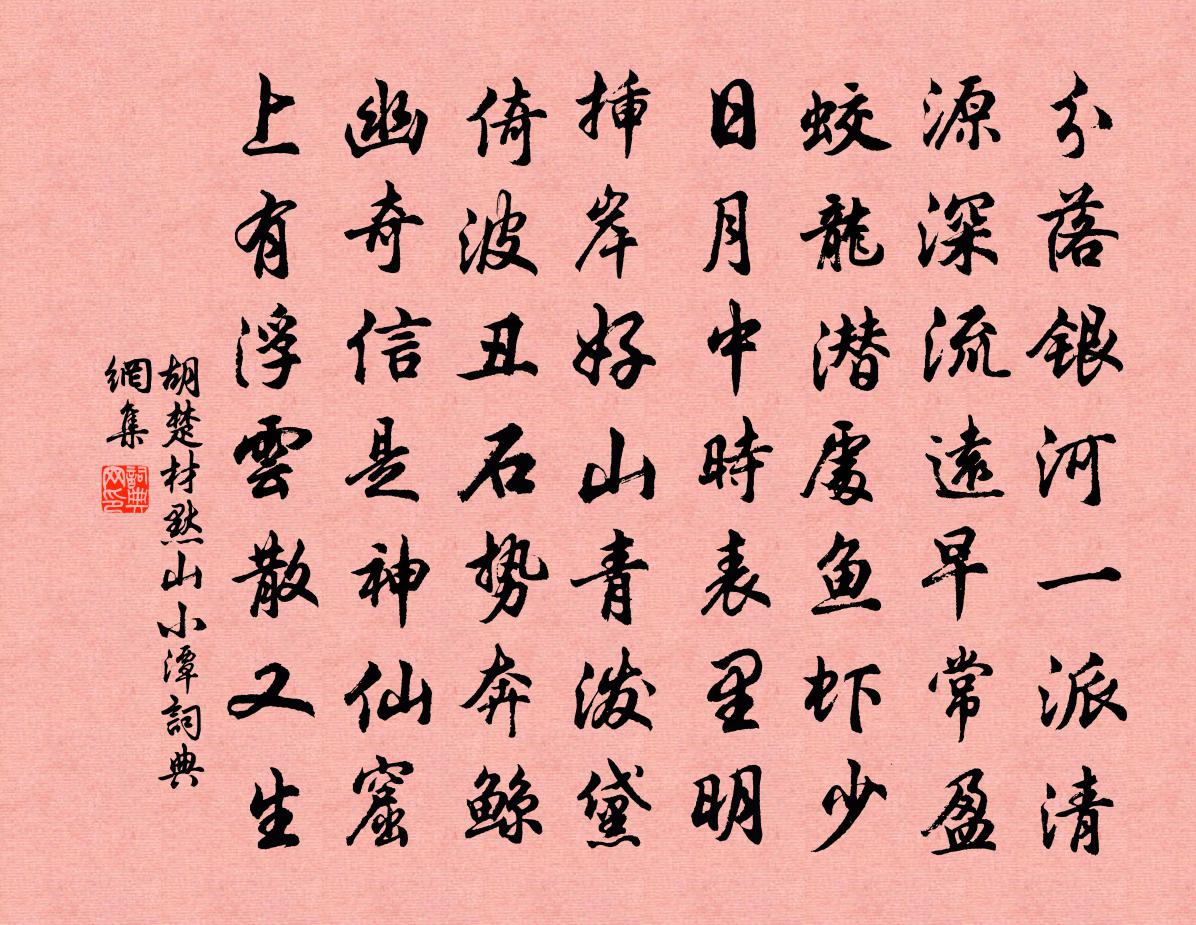 分落银河一派清
源深流遠早常盈
蛟龍潜處鱼虾少
日月中時表里明
揷岸好山青泼黛
倚波丑石势奔鲸
幽奇信是神仙窟
上有浮雲散又生
胡楚材黙山小潭詞典
網集
詞典
网印